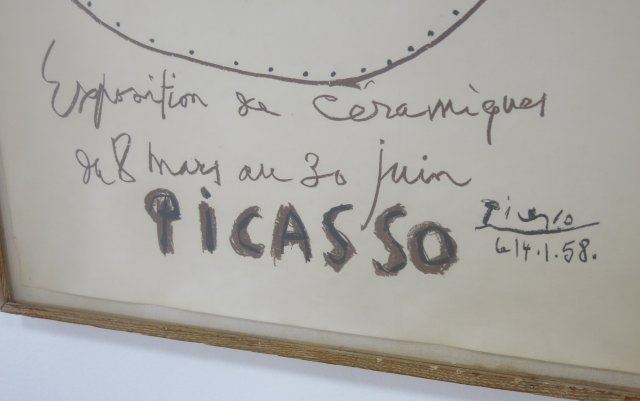 Exposition de céramiques
du 8 mars au 30 juin
PICASSO
Picasso
le 14.1.58.